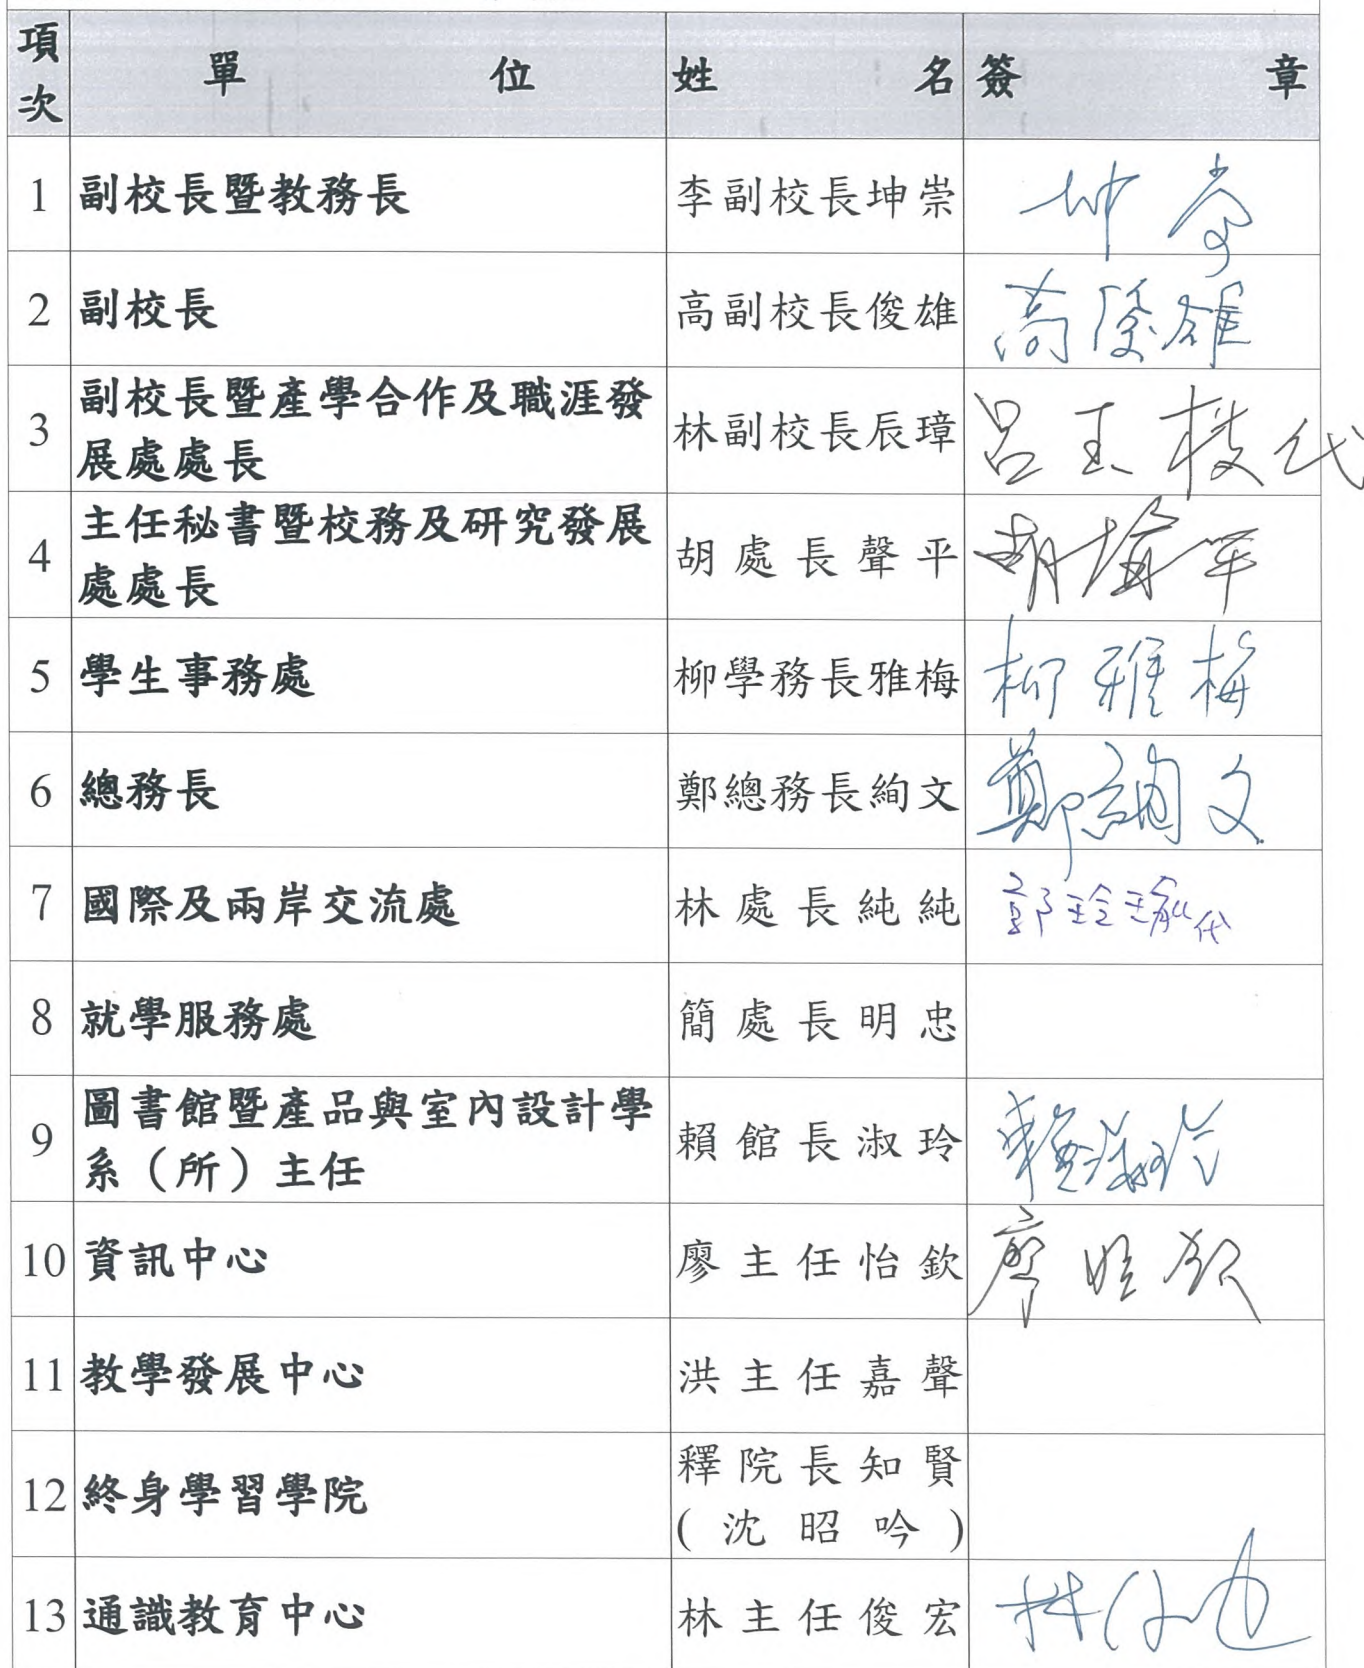 項次 單位 姓名 簽章
1 副校長暨教務長 李副校長坤崇 坤崇
2 副校長 高副校長俊雄 高俊雄
3 副校長暨產學合作及職涯發
展處處長 林副校長辰璋 呂玉枝代
4 主任秘書暨校務及研究發展
處處長 胡處長聲平 胡聲平
5 學生事務處 柳學務長雅梅 柳雅梅
6 總務長 鄭總務長絢文 鄭絢文
7 國際及兩岸交流處 林處長純純 代
8 就學服務處 簡處長明忠
9 圖書館暨產品與室內設計學
系（所）主任 賴館長淑玲 賴淑玲
10 資訊中心 廖主任怡欽 廖怡欽
11 教學發展中心 洪主任嘉聲
12 終身學習學院 釋院長知賢
(沈昭吟)
13 通識教育中心 林主任俊宏 林俊宏